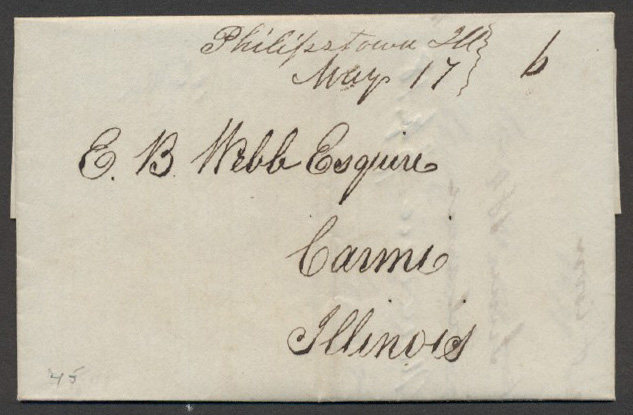 Philipstown Ill
May 17 6
E. B. Webb Esquire
Carmi
Illinois
45